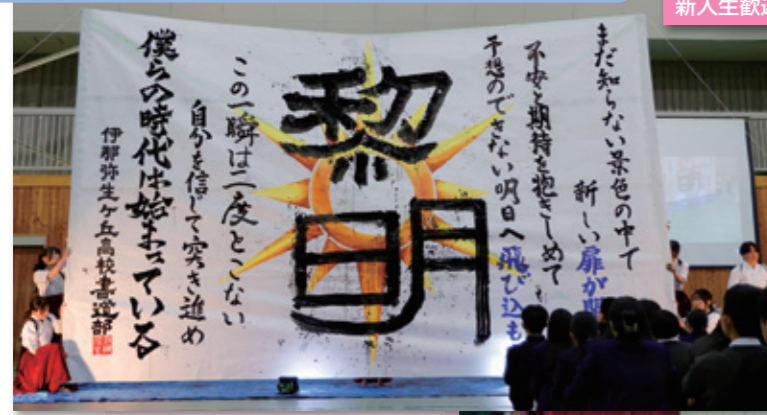 新入生歓迎
まだ知らない景色の中で
新しい扉が
不安と期待を抱きしめて
予想のできない明日へ飛び込も
黎明
この一瞬は二度とこない
自分を信じて突き進め
僕らの時代は始まっている
伊那弥生ヶ丘高校書道部